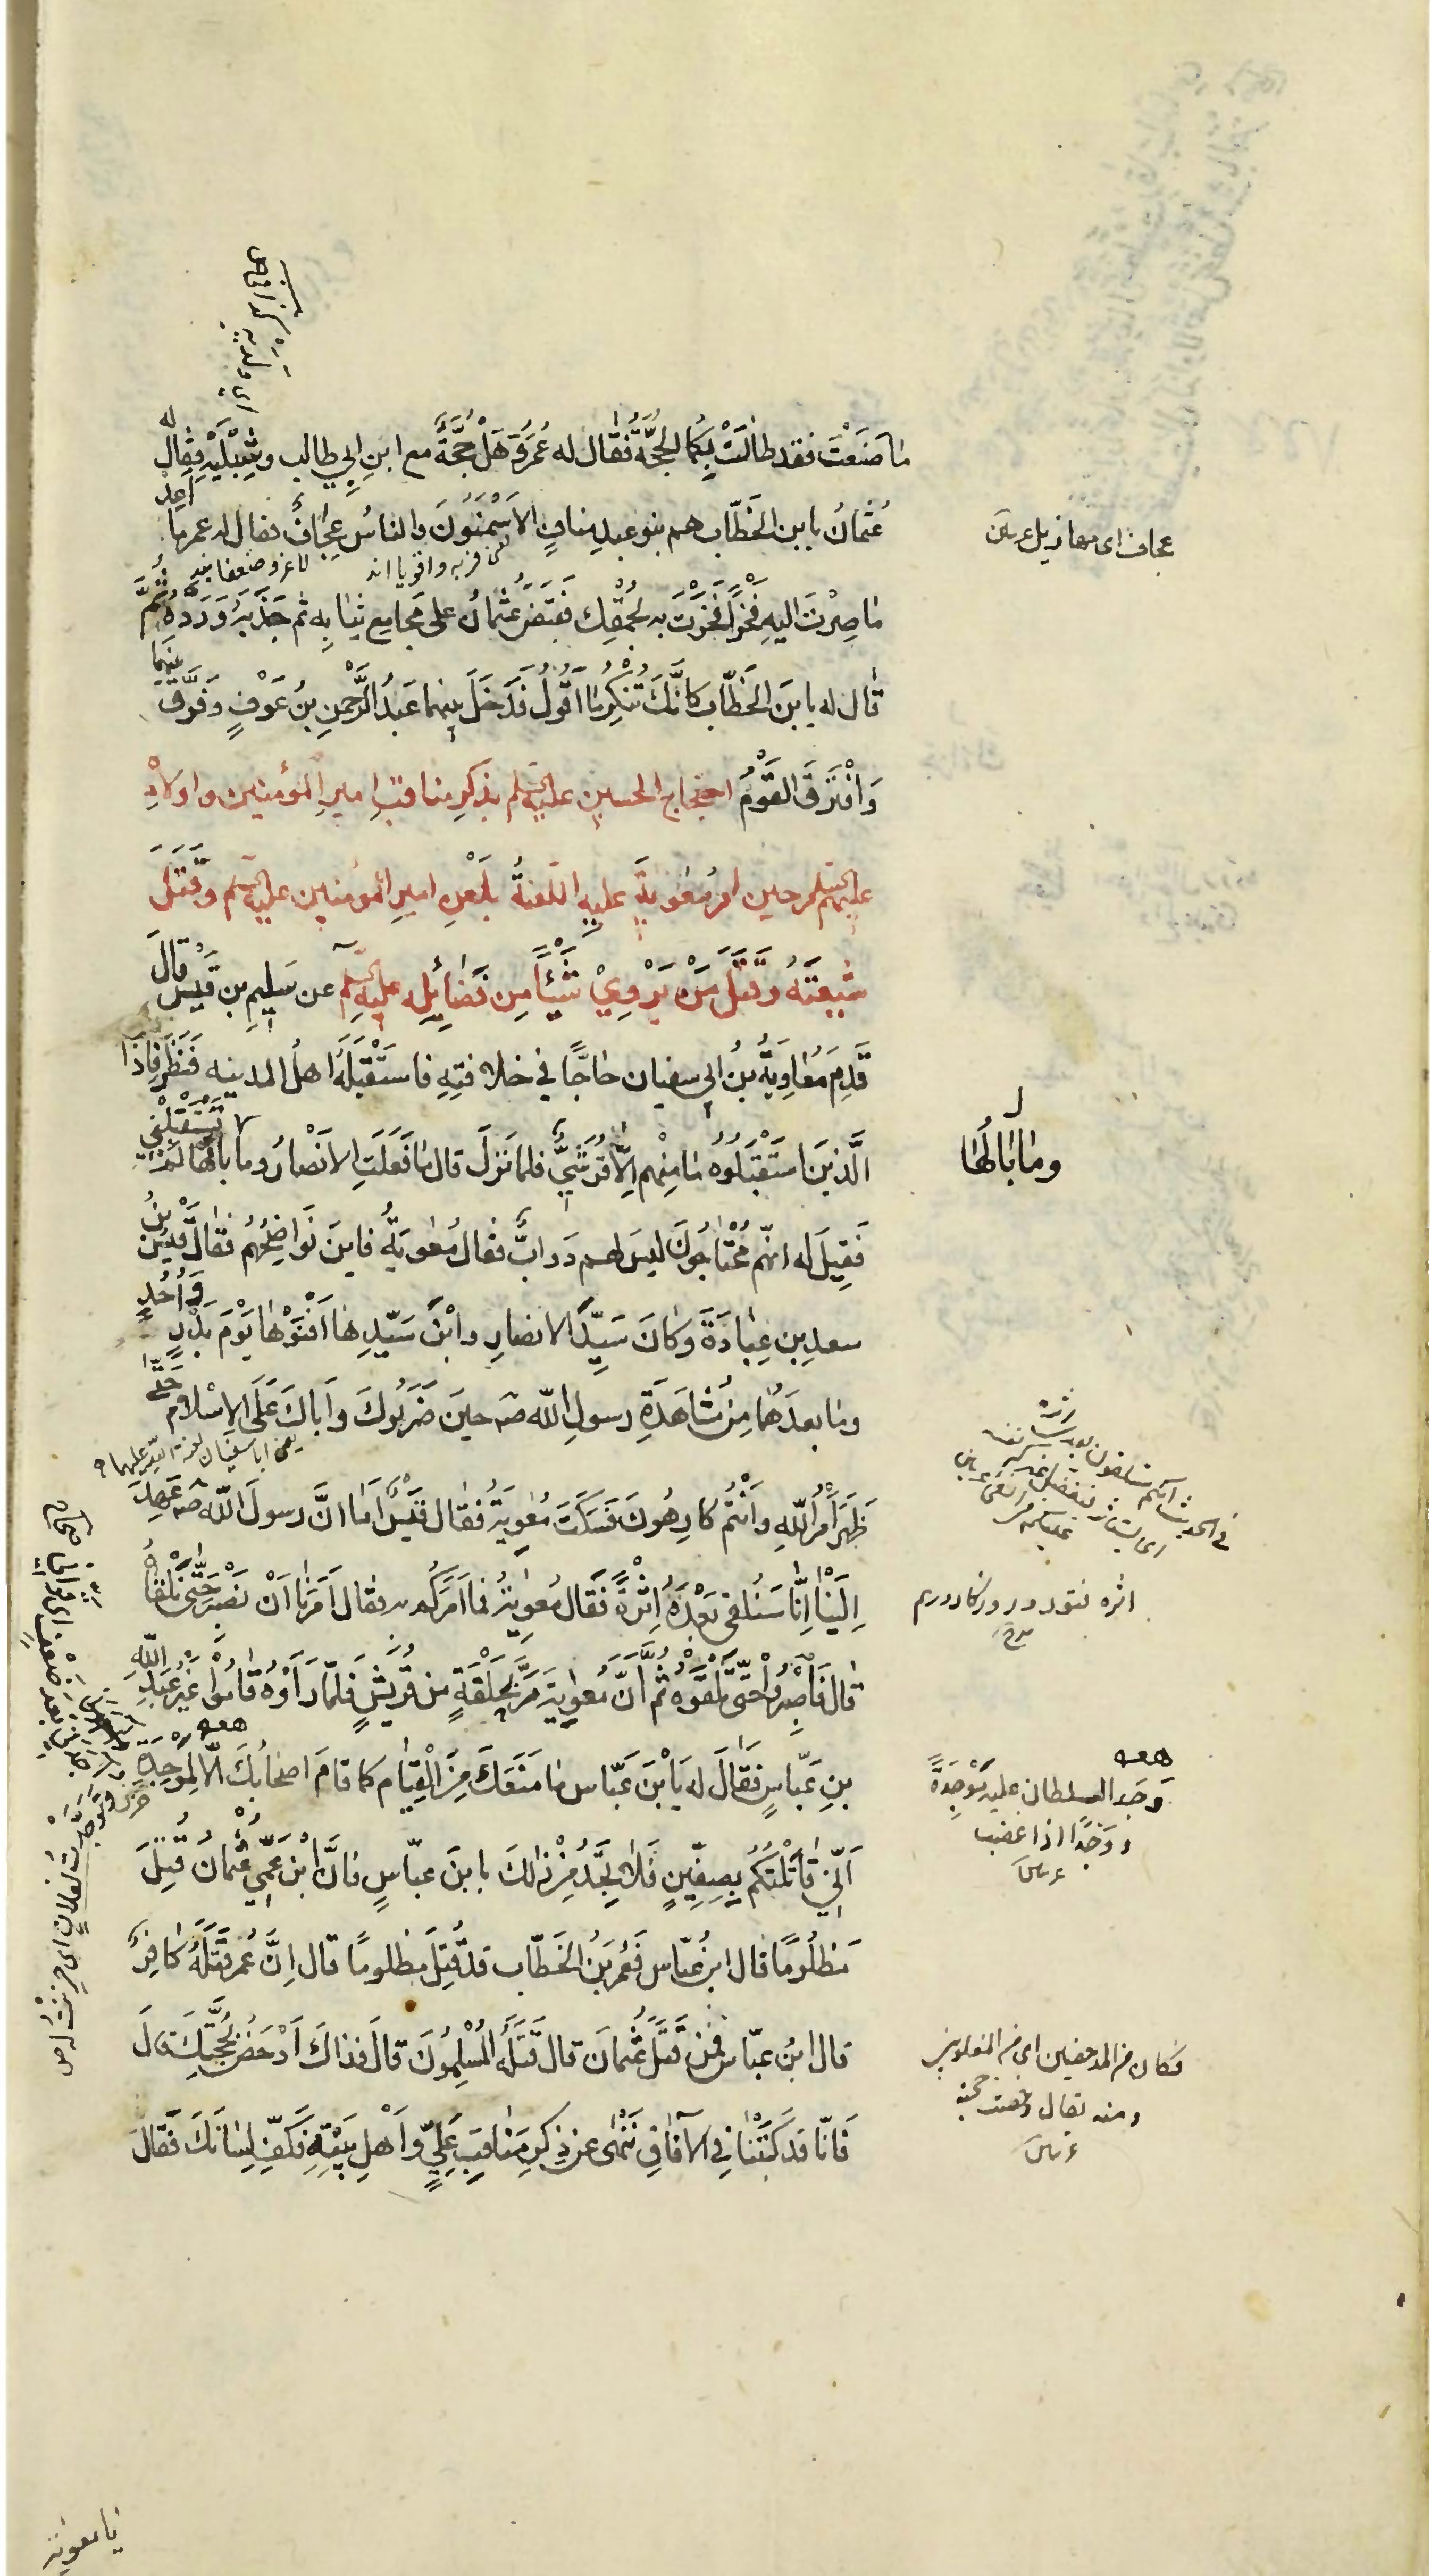 ما صَنَعْتَ فقد طالَتْ بِكُما الحُجَّةُ فَقال له عُمَرُ وَ هَلْ حُجَّةً مع ابنِ ابي طالب وشِبْلَيْهِ فقال له
عُثمانُ يابن الخَطّاب هم بنو عبدِ منافٍ الاَسْمَنُونَ والناسُ عِجافٌ فقال له عمر ما اَعُدُّ
يعنى فربه واقويا اند
لاغر وضعفا اند
ما صِرْتَ اليهِ فَخْرًا فَخَرْتَ به لِحُمْقِك فقَبَضَ عُثمانُ على مَجامِعِ ثيابِهِ ثم جَذَبَهُ وَ رَدَّهُ ثُمَّ
قال له يا بنَ الخَطّاب كانَّكَ تُنْكِرُ ما اَقُولُ فَدَخَلَ بينهما عَبدُ الرَّحْمنِ بنُ عَوْفٍ وَ فَرَّقَ بينهما
وَافْتَرَقَ القَوْمُ احتجاج الحسين عليه السلام بذكرِ مناقبِ اميرِ المؤمنين واولادِه
عليهم السلم حين امر مُعويَةُ عليهِ اللّعنةُ بلَعْنِ اميرِ المؤمنين عليه السلم وقَتْلِ
شيعَتِهُ وقَتْلِ مَنْ يَرْوِيْ شَيْئًا مِن فَضائِلِه عليه السلم عن سَليمِ بن قَيْس قالَ
قَدِمَ مُعاوِيَةُ بنُ ابى سفيان حاجًّا في خلافتِهِ فاستَقْبَلَهُ اهلُ المدينه فَنَظَرَ فاِذَا
الَّذينَ استَقْبَلُوهُ ما مِنْهم اِلّا قُرَشِيٌّ فلما نَزَلَ قال ما فَعَلَتِ الاَنْصارُ وما بالُها لَم تَسْتَقْبِلْني
فَقيلَ له انّهم مُحْتاجُونَ ليسَ لهم دَدابٌّ فقال مُعويةُ فاينَ نَواضِحُهُم فقالَ قَيْسُ بنُ
سعدِ بن عِبادَةَ وكانَ سَيِّدَ الانصارِ وابْنَ سَيّدِها اَفْنَوْها يَوْمَ بَدْرٍ وَ اُحُدٍ
وما بعدَهُما مِنْ مَشاهَدَةِ رسولِ اللّه صه حينَ ضَرَبُوكَ وَاَباكَ عَلَى الاِسْلام حَتّى
يعنى ابا سفيان لعنة اللّه عليهما
ظَهَرَ اَمْرُ اللّهِ وَاَنْتُم كارِهُونَ فَسَكَتَ مُعويةُ فقال قَيْس اَما انَّ رسولَ اللّه صه عَهِدَ
اِلَيْنا اِنّا سَنُلقى بَعْدَهُ اِثْرَةً فَقال مُعويةُ فما اَمَرَكُم به فقال اَمَرَنا اَنْ نَصْبِرَ حَتّى نَلْقاهُ
قال فَاصْبِرُوا حَتّى تَلْقَوْهُ ثُمَّ انَّ مُعويَةَ مَرَّ بِحَلْقَةٍ من قُرَيْشٍ فلمّا رَاَوْهُ قامُوا غَيْرُ عَبدِ اللّهِ
بنِ عَبّاسٍ فَقالَ له يَابْنَ عَبّاس ما مَنَعَكَ مِنَ الْقِيام كما قامَ اصحابُكَ الّا لِمَوْجِدَةِ
اَنّى قاتَلْتُكُمْ بِصِفّينٍ فَلا تَجِدْ مِنْ ذلكَ يابنَ عبّاسٍ فانَّ ابْنَ عَمّى عُثْمانَ قُتِلَ
مَظْلُومًا قال ابنُ عبّاس فَعُمَرُ بنُ الخَطّاب قد قُتِلَ مظلومًا قال اِنَّ عُمَرَ قَتَلَهُ كافِرٌ
قال ابنُ عبّاس فَمَنْ قَتَلَ عُثمانَ قال قَتَلَهُ المُسْلِمُونَ قالَ فذاكَ اَدْحَضُ لِحُجَّتِكَ قالَ
فَانّا قد كَتَبْنا في الآفاقِ نَنْهى عن ذِكرِ مَناقِبِ عَلِيٍّ وَاَهْلِ بَيْتِهِ فَكُفَّ لِسانَكَ فَقالَ
عجاف اى مهازيل عريس
وما بالُها
اثره
وَجَد السلطان عليه مَوْجِدَةً
ووَجْدًا اذا غضب
فكان من المدحضين اى من المغلوبين
ومنه يقال دحضت حجته
يا معوية